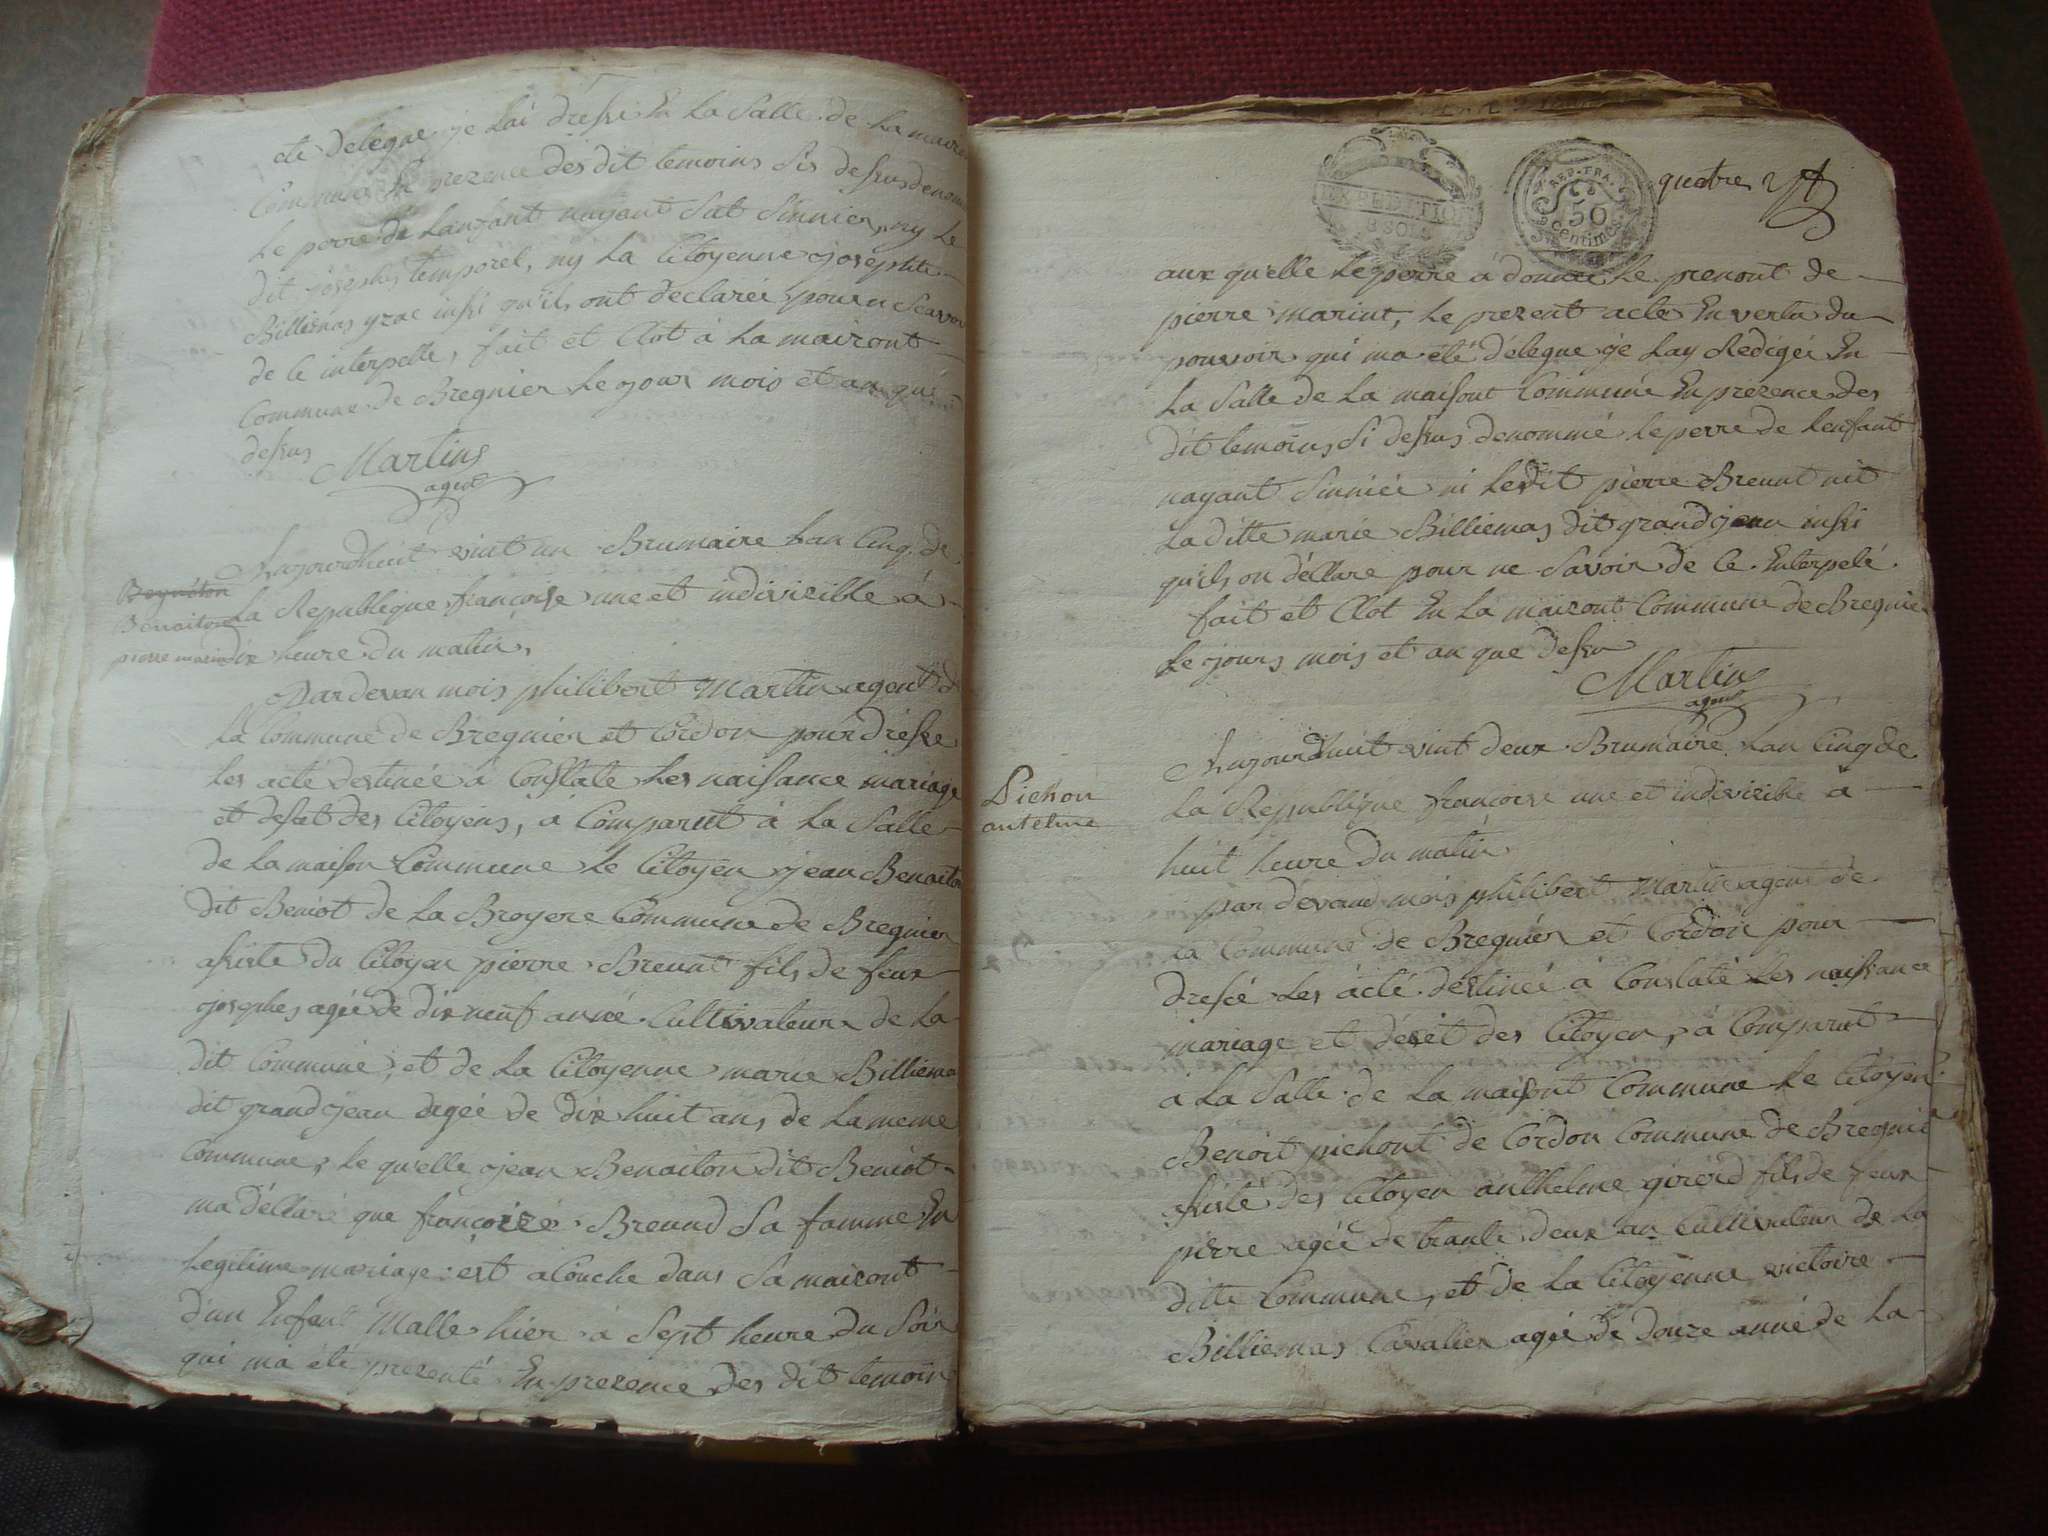 été delegue je lai dressé En La Salle de La mairon
Commune En prezence des dit temoins Sis dessus denom
Le perre de Lanfant nayant Sut Sinnier, ny Le
dit josephs temporel, ny La Citoyenne josephte
Billiemas grac inssi qu'ils ont declarée pour n Scavoir
de ce interpelle, fait et Clot à La mairont
Commune de Bregnier Le jour mois et an que
dessus
Martins
agent
Aujourdhuit vint un Brumaire Lan Cinq de
Benaiton
pierre marin
La Republique françoise une et indivizible à
dix heure du matin,
Pardevan mois philibert Martin agent d
La Commune de Bregnier et Cordon pour dresse
Les acté destinée à Constaté Les naissance mariage
et deset des Citoyens, à Comparut à La Salle
de La maison Commune Le Citoyen jean Benaiton
dit Beniot de La Broyere Commune de Bregnier
assiste du Citoyen pierre Breunt fils de feux
josephes agée de dix neuf anné Cultivateur de La
dit Commune, et de La Citoyenne marie Billiema
dit grandjean agée de dix huit ans, de La meme
Commune, Le quelle jean Benaiton dit Beniot
ma déllaré que françoize Breund Sa famme En
Legitime mariage est aCouche dans Sa mairont
d'un Enfant Malle hier à Sept heure du Soir
qui ma été prezenté En prezence des dit temoin
EXPEDITION
8 SOLS
REP. FRA.
50
centimes
quatres
aux qu'elle Le perre à donné Le prenont de
pierre marint, Le prezent acte En vertu du
pouvoir qui ma été délegue je Lay Redigée En
La Salle de La maisont Commune En prezence des
dit temoins Si dessus denommé Le perre de Lenfant
nayant Sinniée ni Ledit pierre Breunt nit
La ditte marie Billiemas dit grandjean inssi
qu'ils on déllare pour ne Savoir de Ce Enterpelé.
fait et Clot En La mairont Commune de Bregnier
Le jours mois et an que dessu
Martins
agent
Aujourdhuit vint deux Brumaire Lan Cinq de
Pichon
antelme
La Republique françoise une et indivizible à
huit heure du matin
par dévand mois philibert Martin agent de
La Commune de Bregnier et Cordon pour
dressé Les acté destinée à Constaté Les naissance
mariage et déset des Citoyen, à Comparut
a La Salle de La maisont Commune Le Citoyen
Benoit pichont de Cordon Commune de Bregnié
assiste des Citoyen anthelme girerd fils de feux
pierre agée de trante deux an Cultivateur de La
ditte Commune, et de La Citoyenne victoire
Billiemas Cavalier agée de douze anné de La